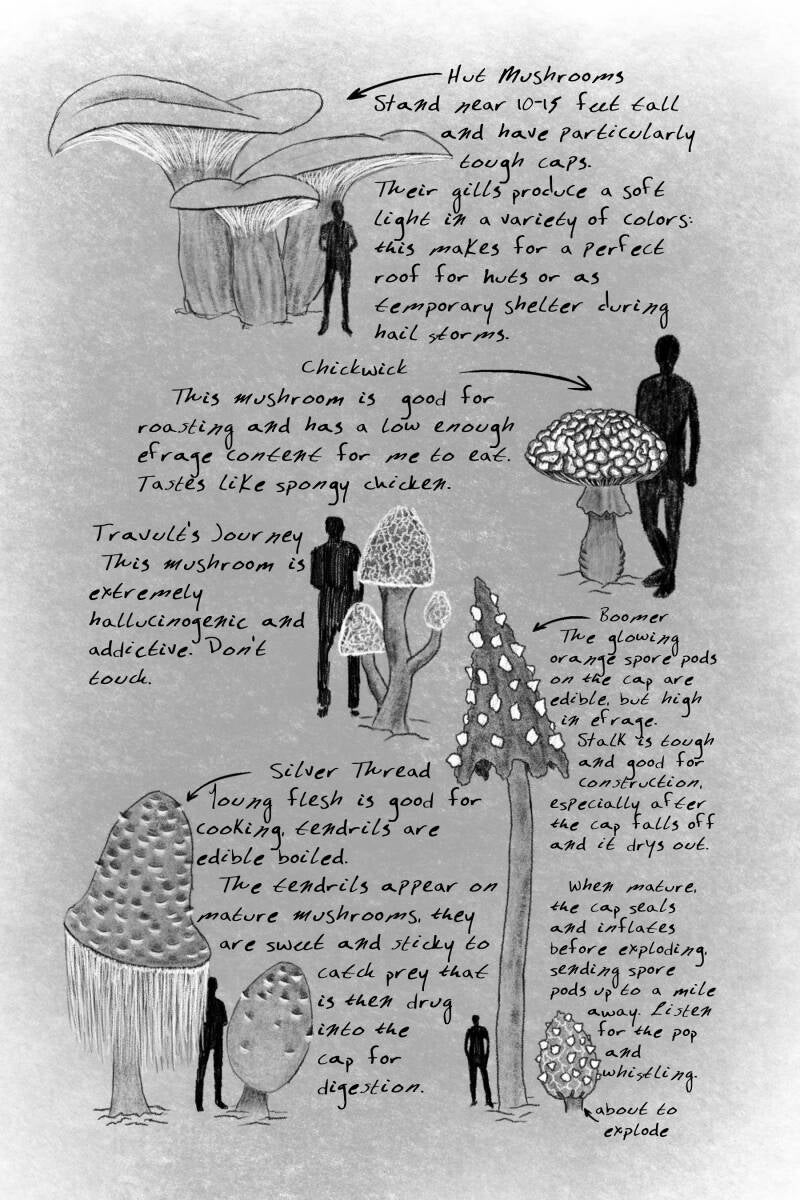 Hut Mushrooms
Stand near 10-15 feet tall
and have particularly
tough caps.
Their gills produce a soft
light in a variety of colors:
this makes for a perfect
roof for huts or as
temporary shelter during
hail storms.
Chickwick
This mushroom is good for
roasting and has a low enough
efrage content for me to eat.
Tastes like spongy chicken.
Travult's Journey
This mushroom is
extremely
hallucinogenic and
addictive. Don't
touch.
Boomer
The glowing
orange spore pods
on the cap are
edible, but high
in efrage.
Stalk is tough
and good for
construction,
especially after
the cap falls off
and it drys out.
When mature,
the cap seals
and inflates
before exploding,
sending spore
pods up to a mile
away. Listen
for the pop
and
whistling.
about to
explode
Silver Thread
Young flesh is good for
cooking, tendrils are
edible boiled.
The tendrils appear on
mature mushrooms, they
are sweet and sticky to
catch prey that
is then drug
into the
cap for
digestion.